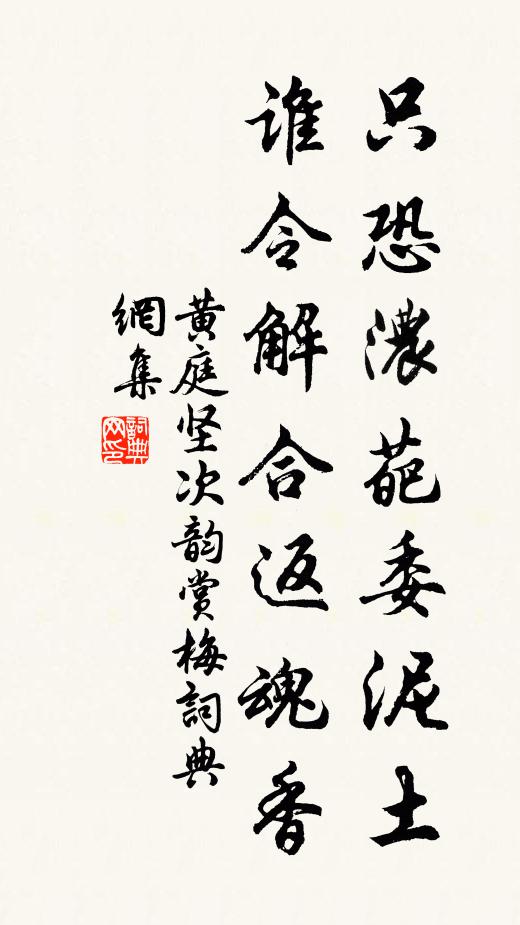 只恐濃葩委泥土
谁令解合返魂香
黄庭坚次韵賞梅詞典
網集
詞典
网印